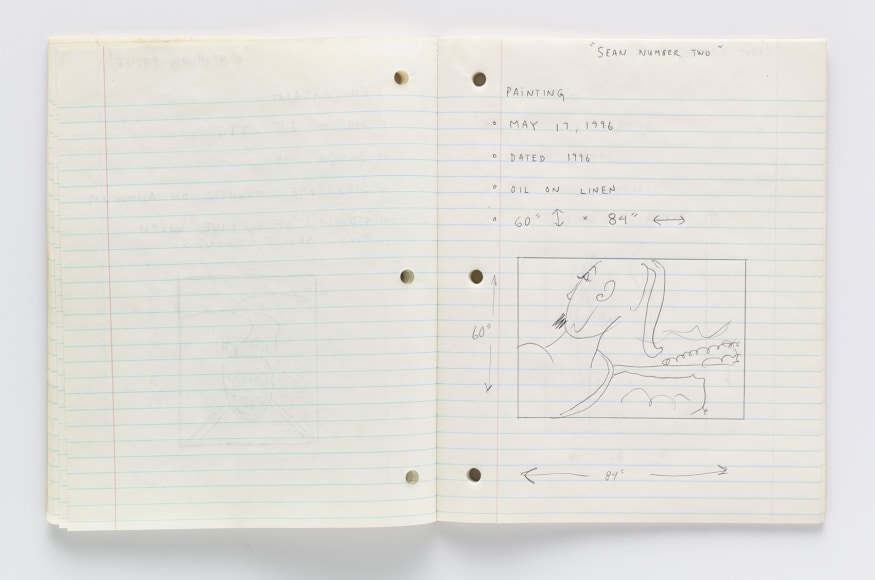 "SEAN NUMBER TWO"
PAINTING
° MAY 17, 1996
° DATED 1996
° OIL ON LINEN
° 60" ↕ × 84" ↔
60"
84"